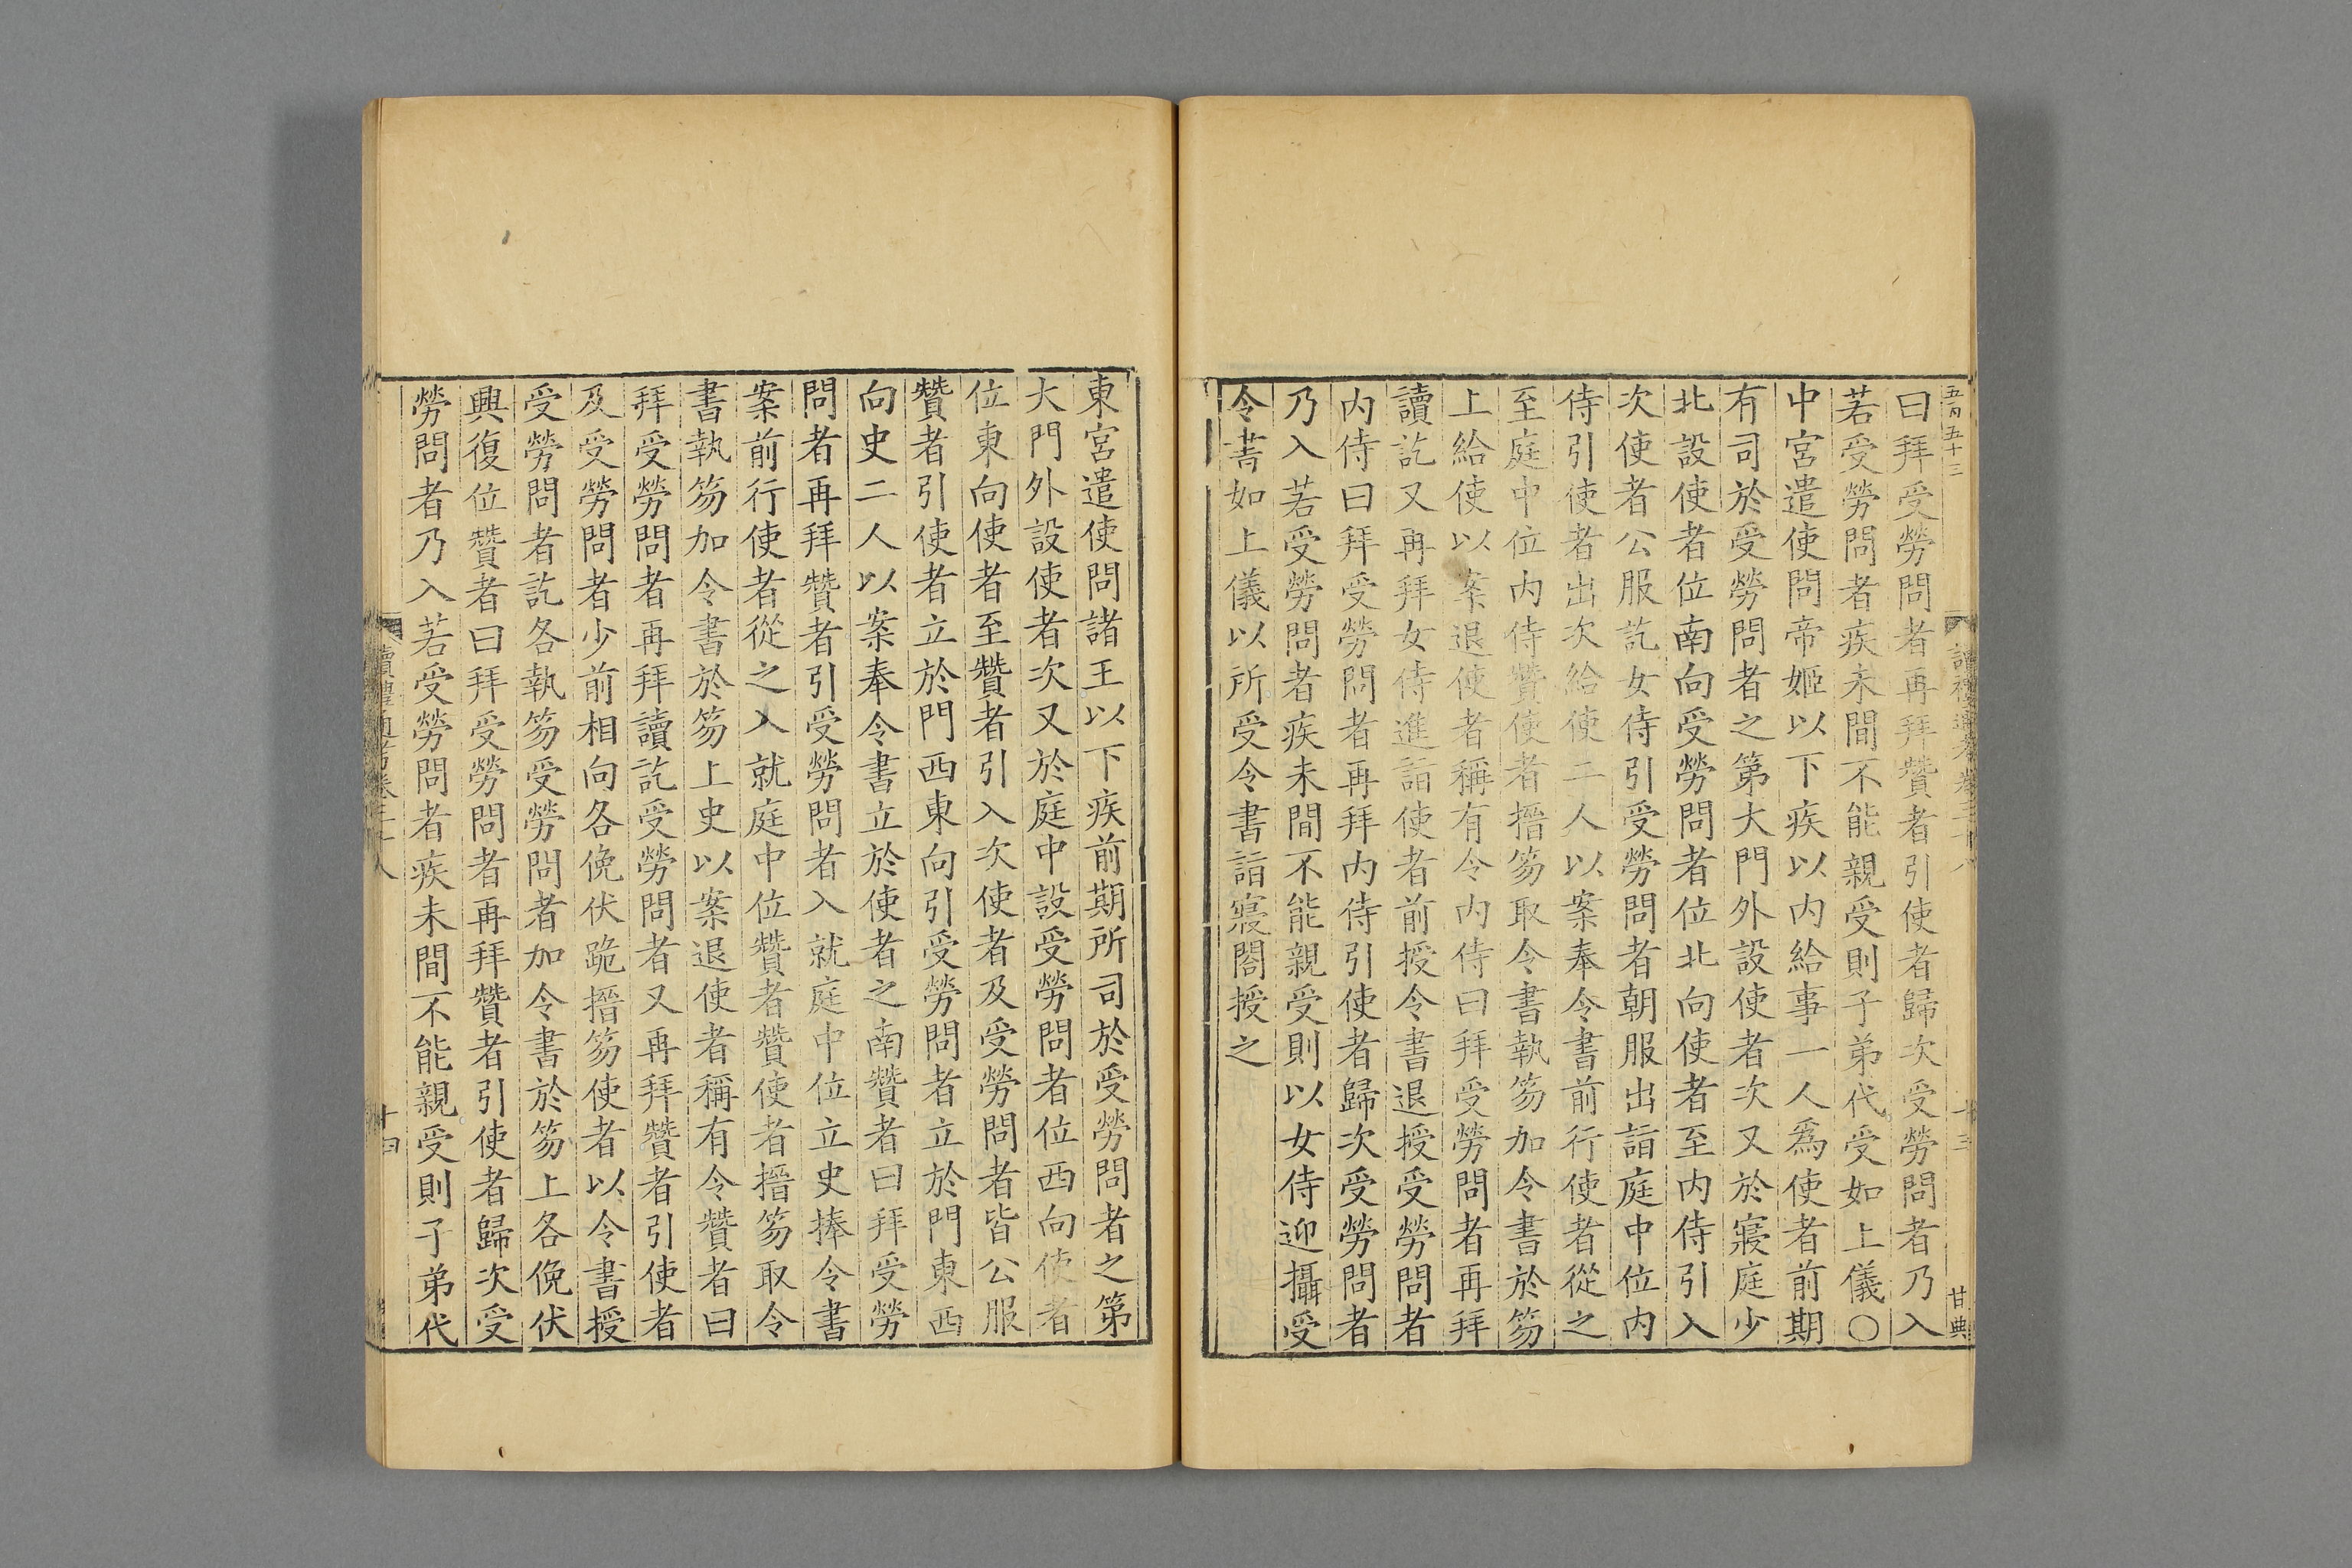 五百五十三
讀禮通考卷三十八
十三
甘典
曰拜受勞問者再拜贊者引使者歸次受勞問者乃入
若受勞問者疾未間不能親受則子弟代受如上儀〇
中宮遣使問帝姬以下疾以内給事一人爲使者前期
有司於受勞問者之第大門外設使者次又於寢庭少
北設使者位南向受勞問者位北向使者至内侍引入
次使者公服訖女侍引受勞問者朝服出詣庭中位内
侍引使者出次給使二人以案奉令書前行使者從之
至庭中位内侍贊使者搢笏取令書執笏加令書於笏
上給使以案退使者稱有令内侍曰拜受勞問者再拜
讀訖又再拜女侍進詣使者前授令書退授受勞問者
内侍曰拜受勞問者再拜内侍引使者歸次受勞問者
乃入若受勞問者疾未間不能親受則以女侍迎攝受
令書如上儀以所受令書詣寢閤授之
東宮遣使問諸王以下疾前期所司於受勞問者之第
大門外設使者次又於庭中設受勞問者位西向使者
位東向使者至贊者引入次使者及受勞問者皆公服
贊者引使者立於門西東向引受勞問者立於門東西
向史二人以案奉令書立於使者之南贊者曰拜受勞
問者再拜贊者引受勞問者入就庭中位立史捧令書
案前行使者從之入就庭中位贊者贊使者搢笏取令
書執笏加令書於笏上史以案退使者稱有令贊者曰
拜受勞問者再拜讀訖受勞問者又再拜贊者引使者
及受勞問者少前相向各俛伏跪搢笏使者以令書授
受勞問者訖各執笏受勞問者加令書於笏上各俛伏
興復位贊者曰拜受勞問者再拜贊者引使者歸次受
勞問者乃入若受勞問者疾未間不能親受則子弟代
讀禮通考卷三十八
十四